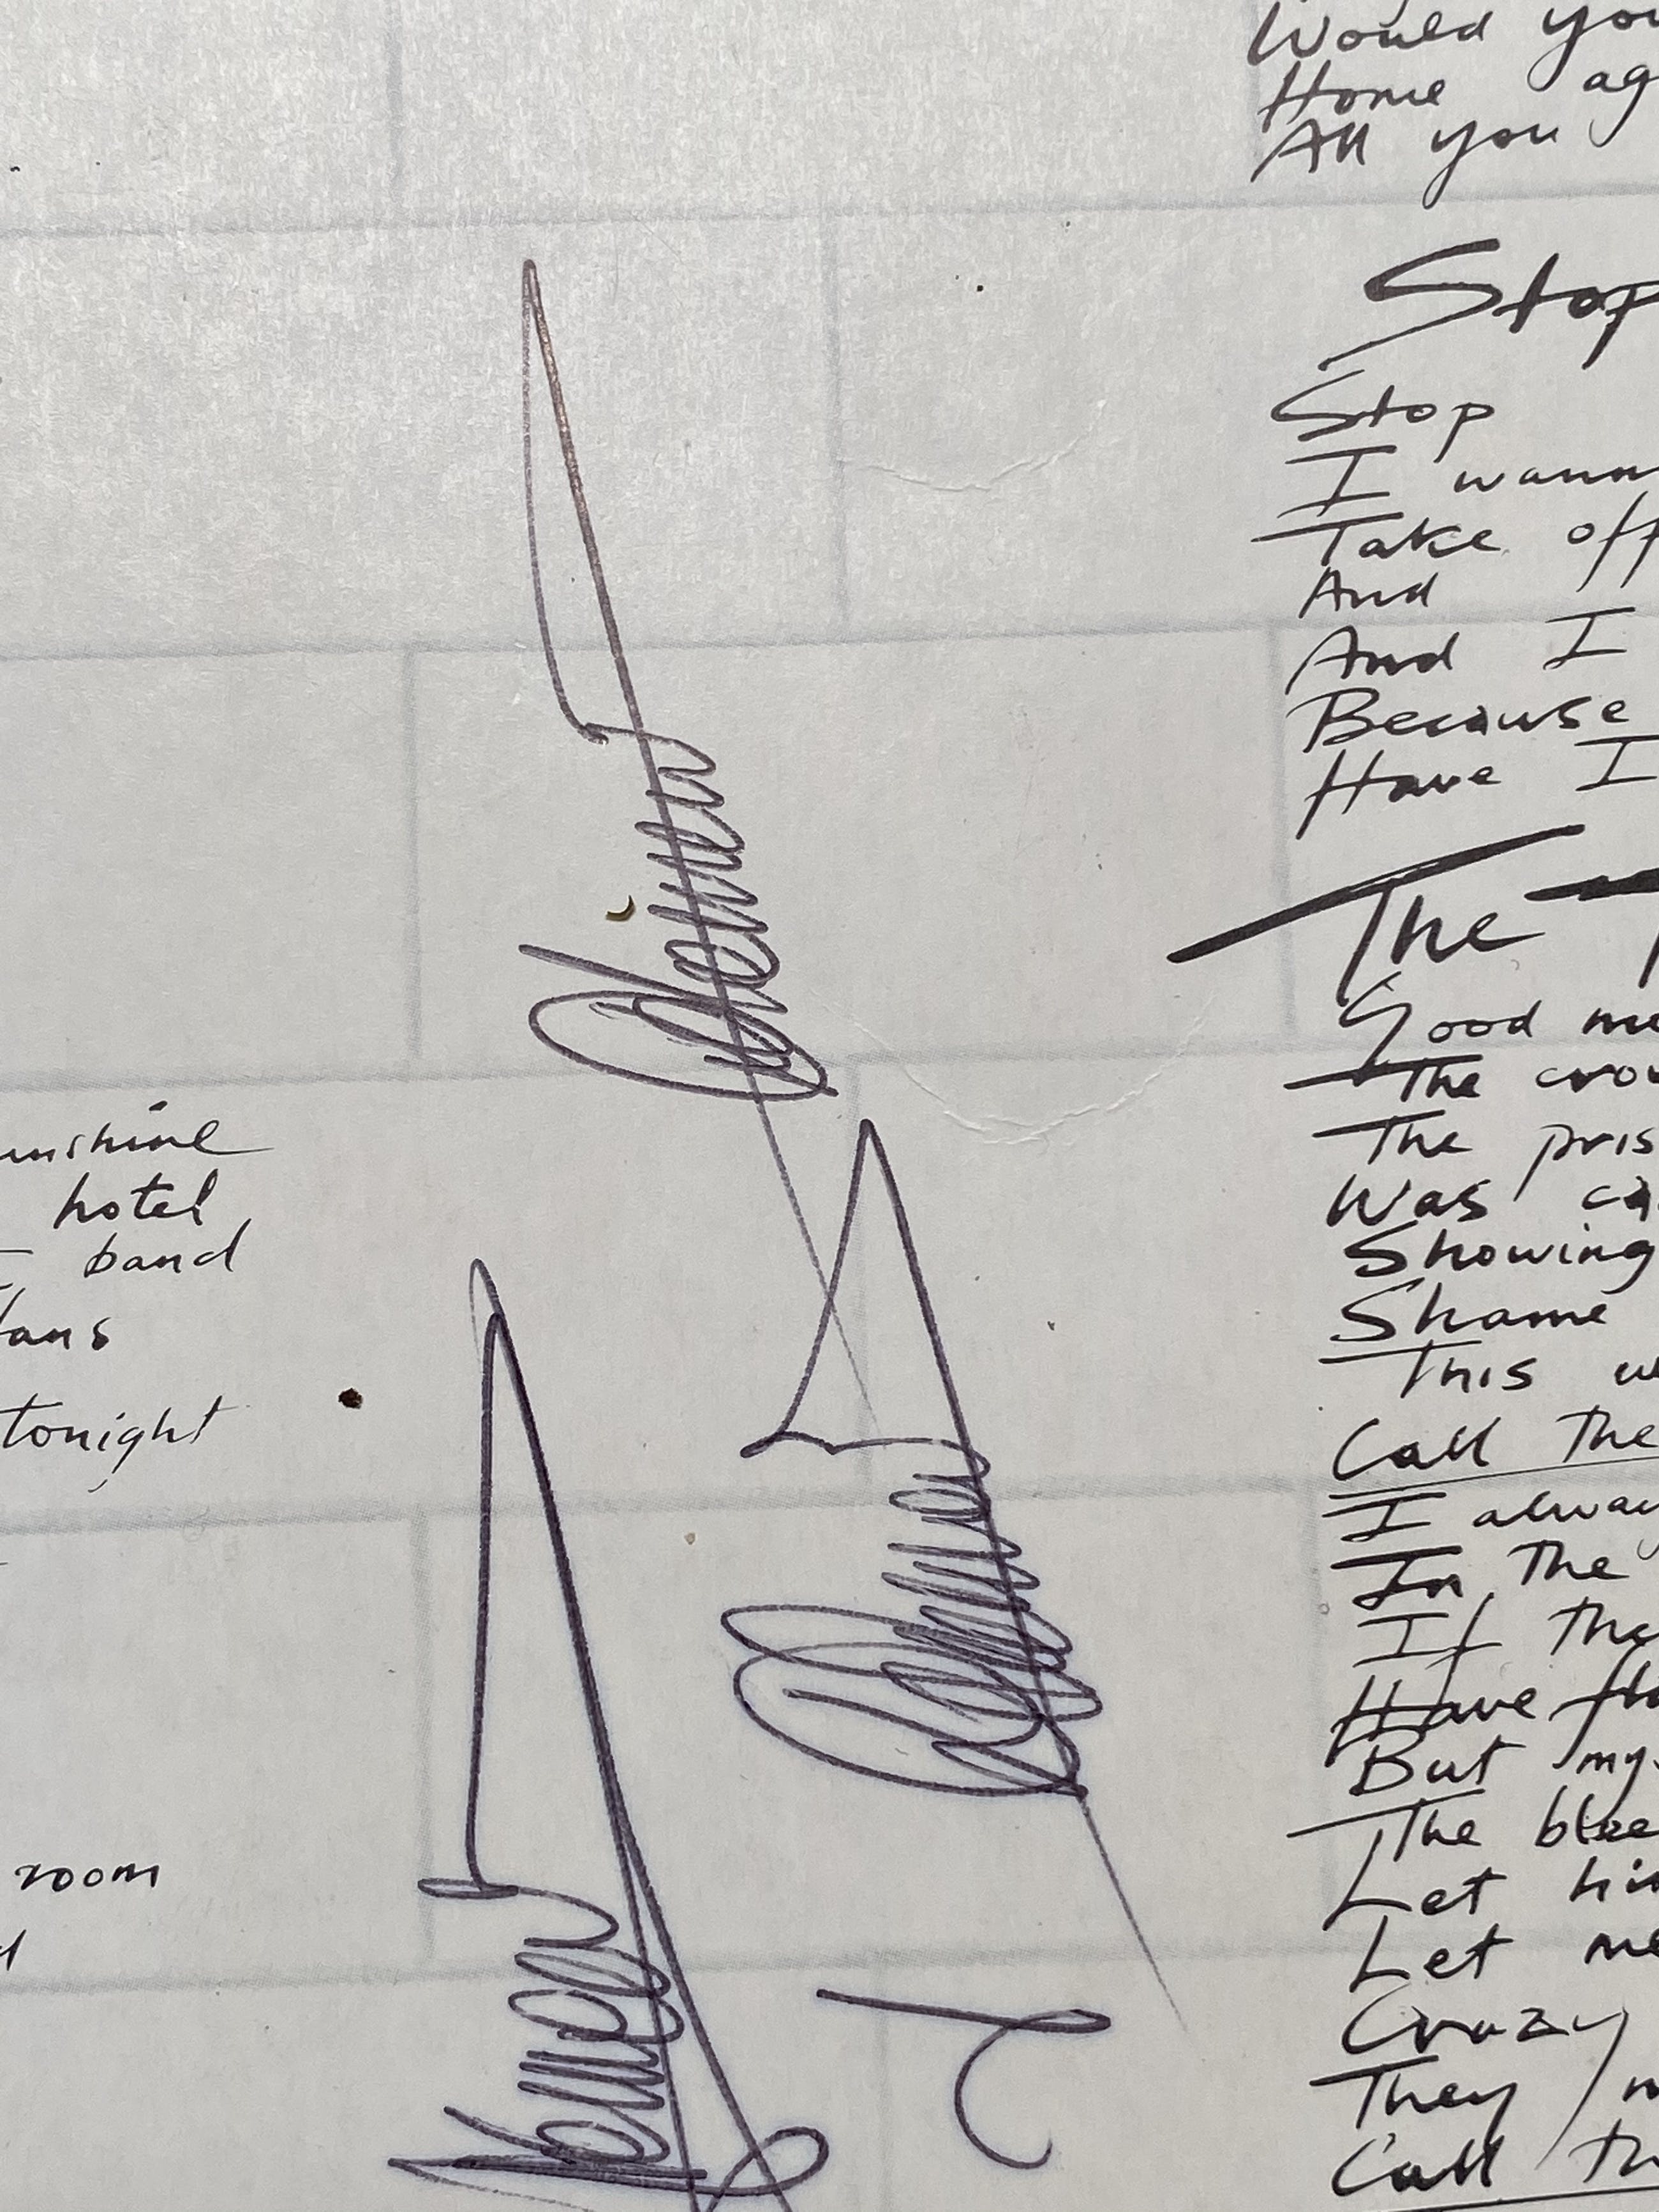 Would you
Home ag
All you
Stop
Stop
I wann
Take off
And
And I
Because
Have I
The T
Good mo
The crow
The pris
Was ca
Showing
Shame
This w
Call the
I alway
In the
If they
Have fla
But my
The blee
Let hi
Let me
Crazy
They m
Call th
unshine
hotel
band
fans
tonight
room